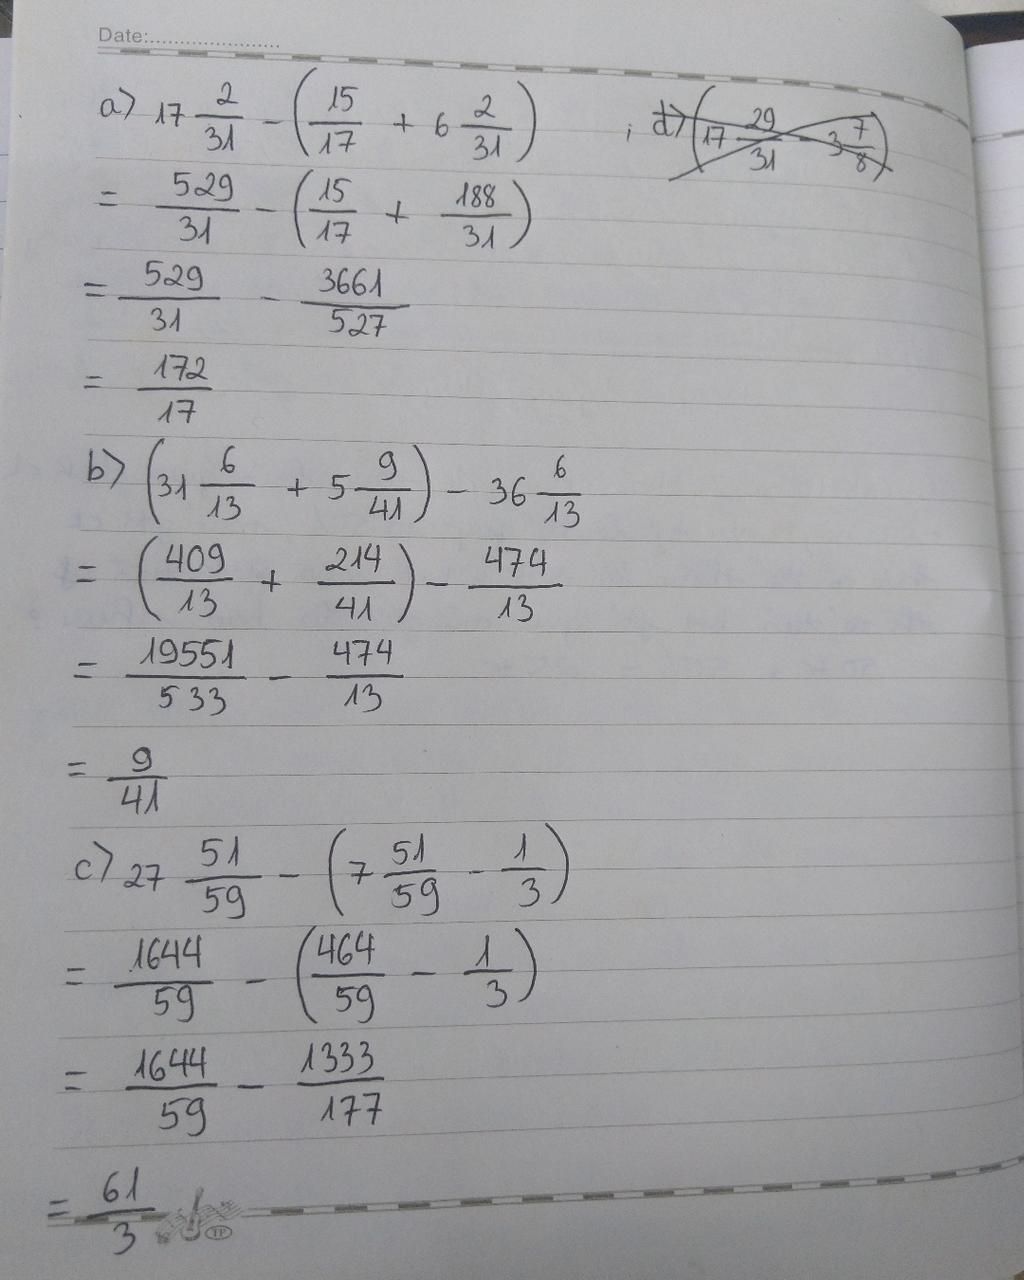 Date:......................
a) 17 2/31 - (15/17 + 6 2/31) ; d) (17 29/31 - 3 7/8)
= 529/31 - (15/17 + 188/31)
= 529/31 - 3661/527
= 172/17
b) (31 6/13 + 5 9/41) - 36 6/13
= (409/13 + 214/41) - 474/13
= 19551/533 - 474/13
= 9/41
c) 27 51/59 - (7 51/59 - 1/3)
= 1644/59 - (464/59 - 1/3)
= 1644/59 - 1333/177
= 61/3
TP